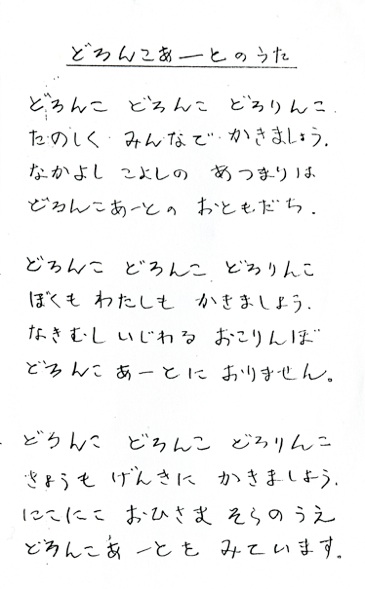 どろんこあーとのうた
どろんこ どろんこ どろりんこ
たのしく みんなで かきましょう.
なかよし こよしの あつまりは
どろんこあーとの おともだち.
どろんこ どろんこ どろりんこ
ぼくも わたしも かきましょう.
なきむし いじわる おこりんぼ
どろんこ あーとに おりません。
どろんこ どろんこ どろりんこ
きょうも げんきに かきましょう.
にこにこ おひさま そらのうえ
どろんこあーとを みています。